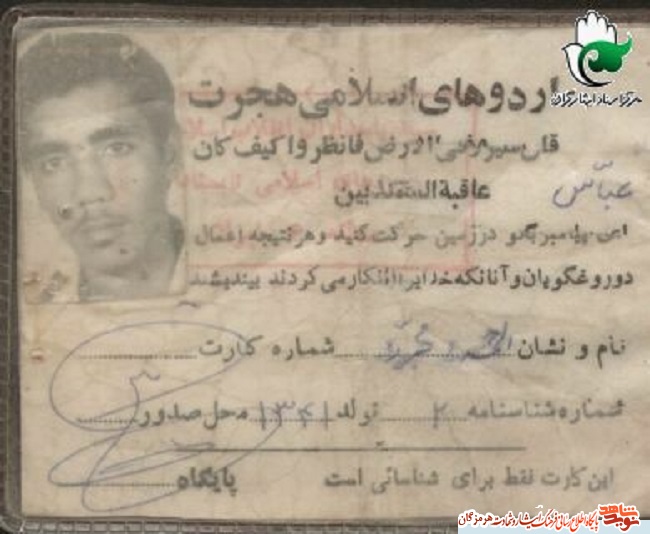 مرکز اسناد ایثارگران
اردوهای اسلامی هجرت
قل سیروا فی الارض فانظروا کیف کان
عاقبة المکذبین
عباس
ای پیامبر بگو در زمین حرکت کنید و هر نتیجه اعمال
دوروغگویان و آنانکه خدا را انکار می کردند بیندیشند
نام و نشان شماره کارت
شماره شناسنامه ۲ تولد ۱۳۴۱ محل صدور
این کارت فقط برای شناسائی است پایگاه
نوید شاهد پایگاه اطلاع رسانی فرهنگ ایثار و شهادت هرمزگان